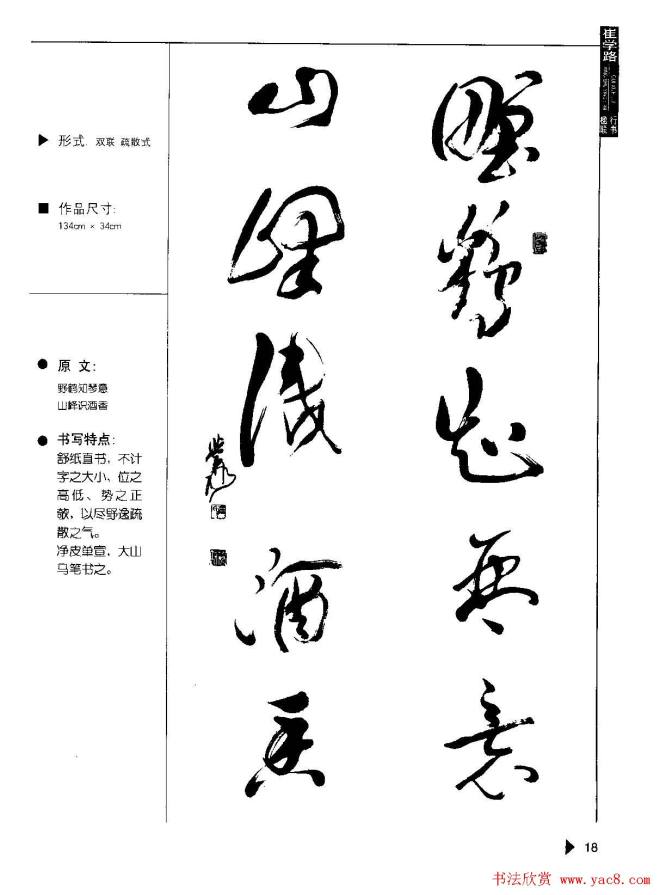 崔学路
行书
楹联
野鹤知琴意
山峰识酒香
▶ 形式 双联 疏散式
■ 作品尺寸:
134cm × 34cm
● 原文:
野鹤知琴意
山峰识酒香
● 书写特点:
舒纸直书，不计
字之大小、位之
高低、势之正
欹，以尽野逸疏
散之气。
净皮单宣，大山
马笔书之。
▶ 18
书法欣赏 www.yac8.com